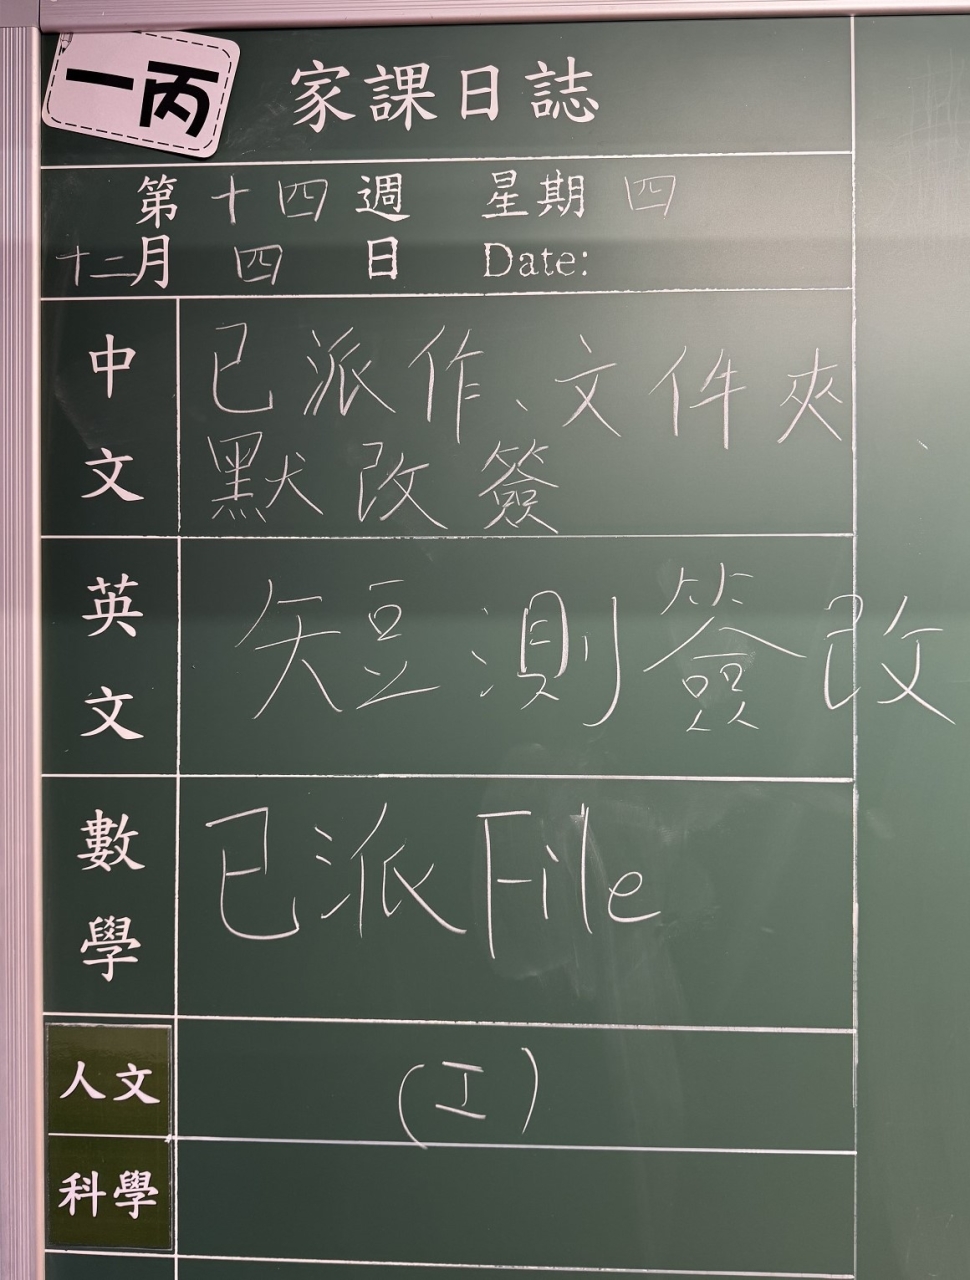 一丙
家課日誌
第十四週 星期四
十二月四日 Date:
中文
已派作、文件夾、
默改簽
英文
短測簽改
數學
已派File
人文
(工)
科學